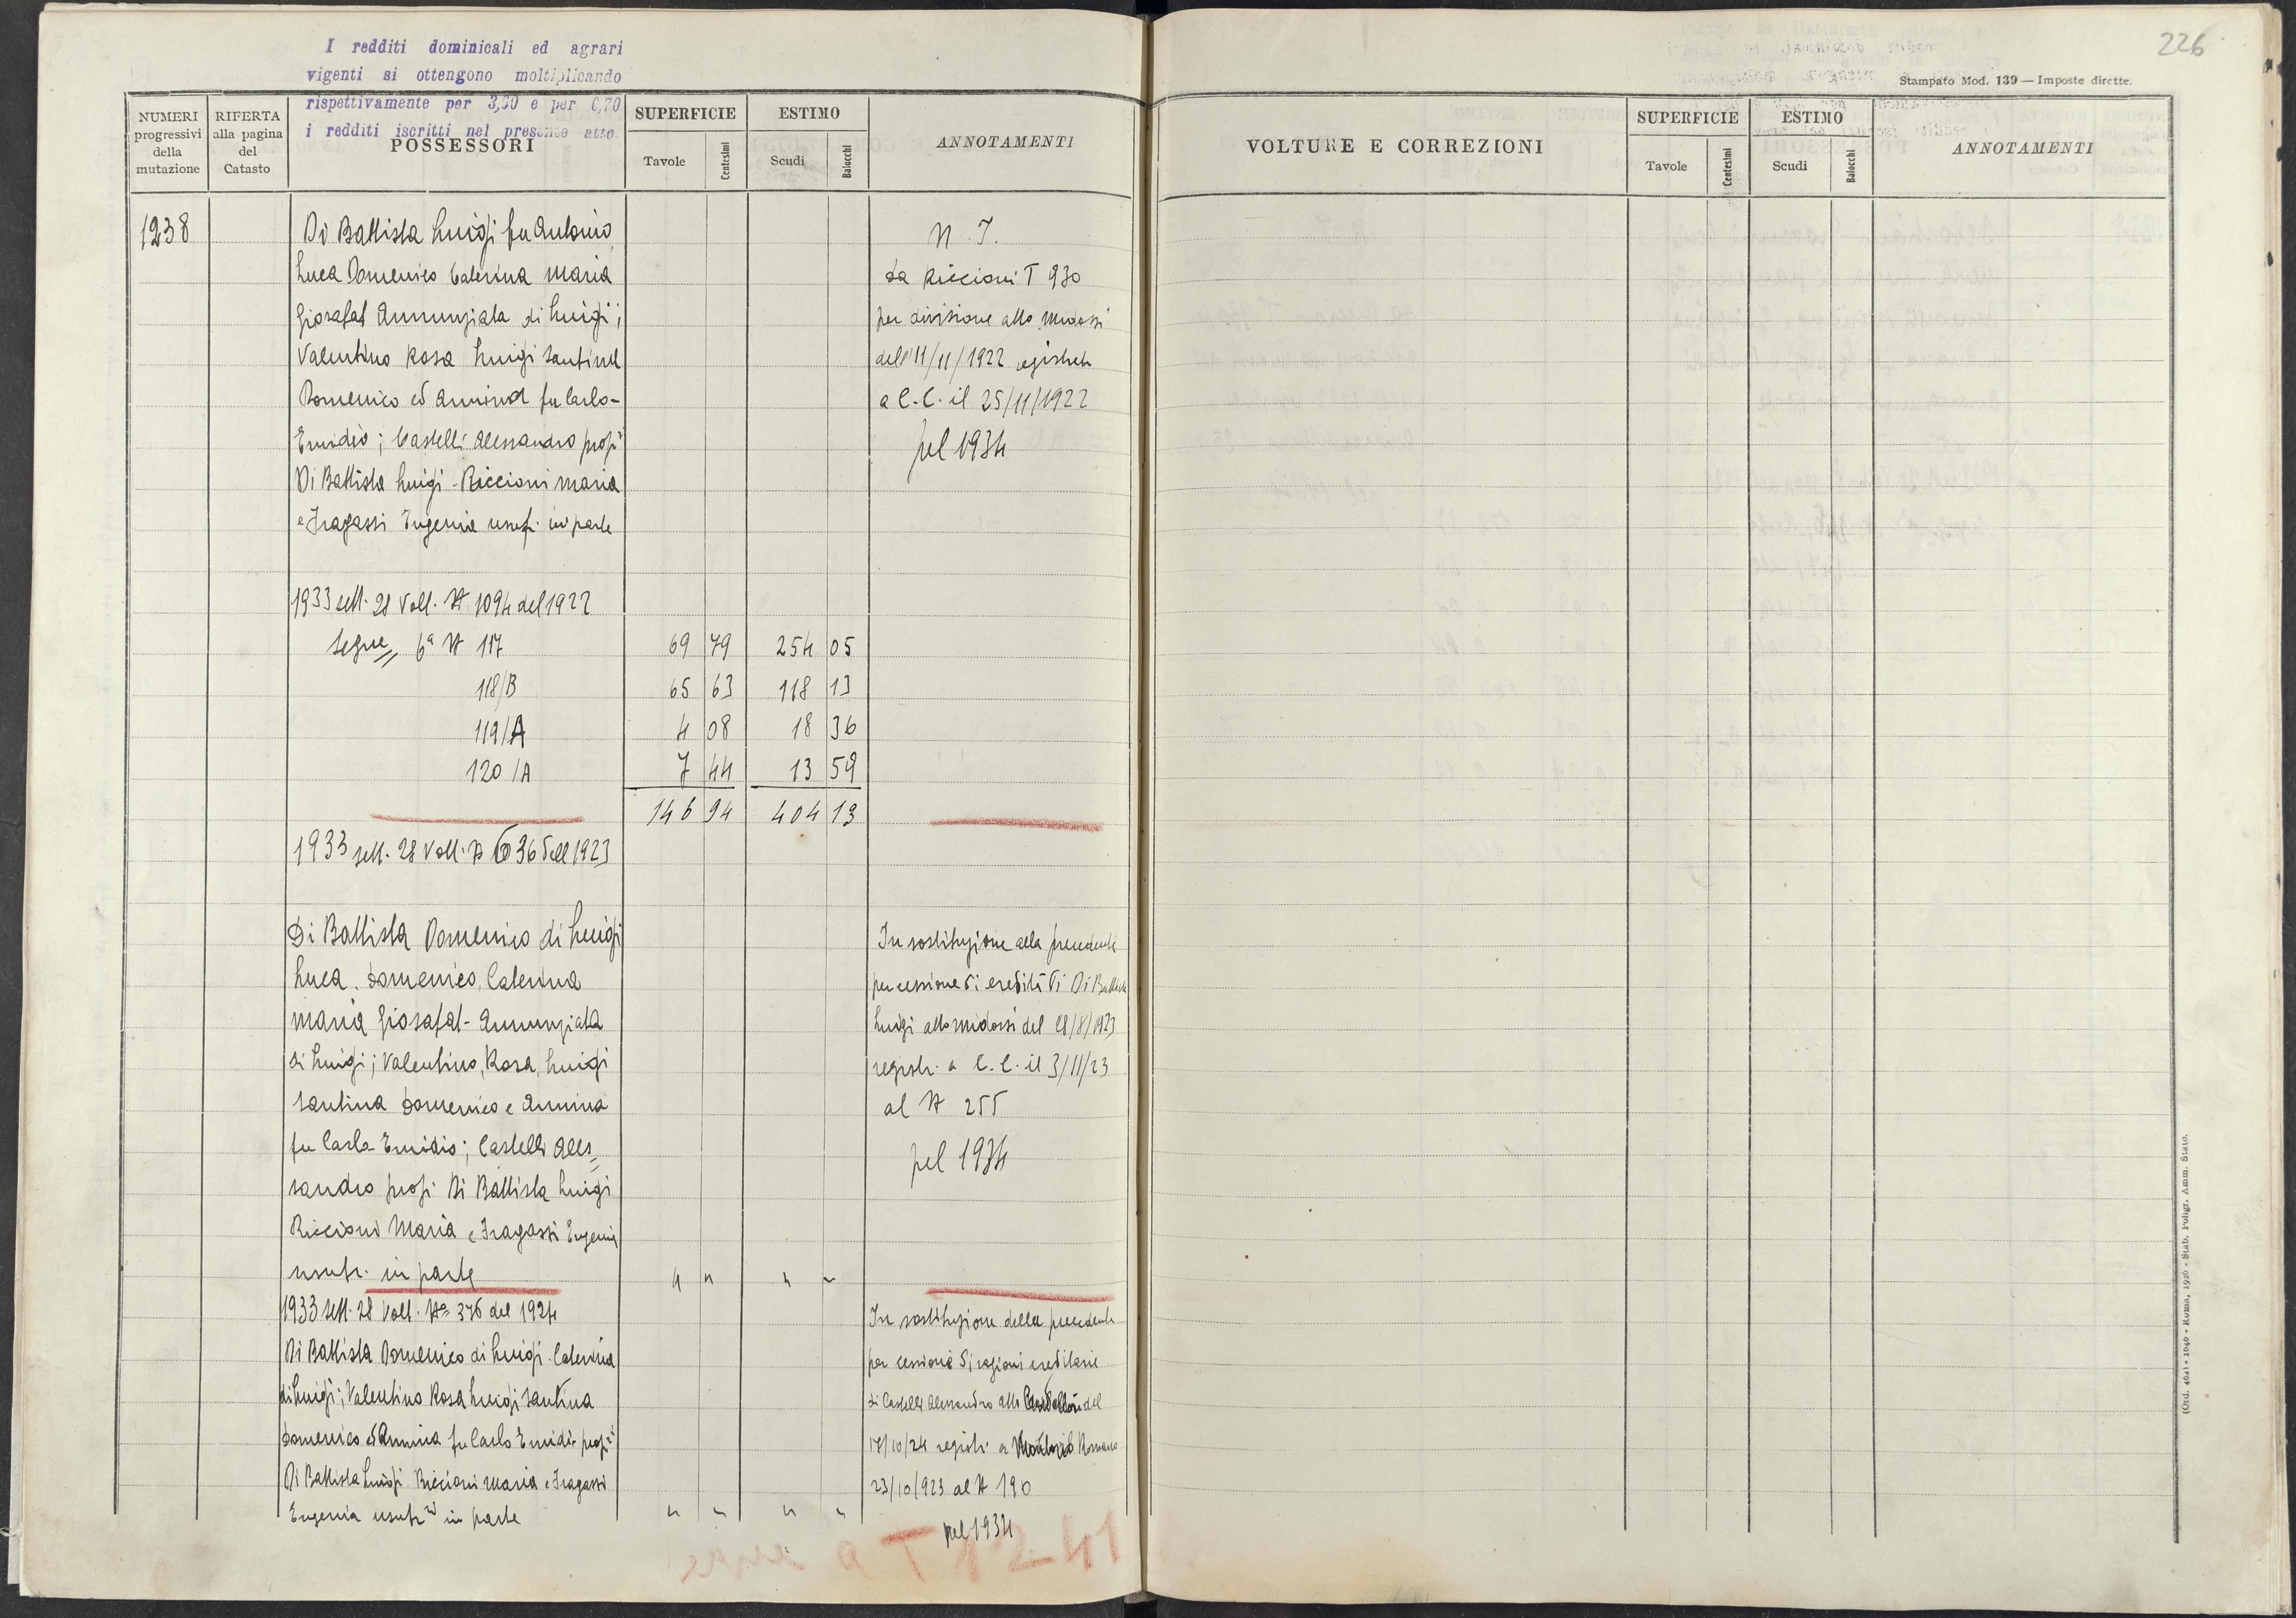 I redditi dominicali ed agrari
vigenti si ottengono moltiplicando
rispettivamente per 3,30 e per 0,70
i redditi iscritti nel presente atto.
NUMERI progressivi della mutazione
RIFERTA alla pagina del Catasto
POSSESSORI
SUPERFICIE
Tavole
Centesimi
ESTIMO
Scudi
Baiocchi
ANNOTAMENTI
1238
Di Battista Luigi fu Antonio
Luca Domenico Caterina Maria
Giosafat Annunziata di Luigi;
Valentino Rosa Luigi Santina
Domenico ed Annina fu Carlo-
Emidio; Castelli Alessandro propi
Di Battista Luigi - Riccioni Maria
e Fragassi Eugenia usufr. in parte
N. T.
da Riccioni T 930
per divisione atto Midossi
dell'11/11/1922 registrato
a C.C. il 25/11/1922
pel 1934
1933 sett. 28 Volt. N 1094 del 1922
Segue 6a N 117 69 79 254 05
118/B 65 63 118 13
119/A 4 08 18 36
120/A 7 44 13 59
146 94 404 13
1933 sett. 28 Volt. N 636 dell 1923
Di Battista Domenico di Luigi
Luca. Domenico, Caterina
Maria Giosafat - Annunziata
di Luigi; Valentino, Rosa, Luigi
Santina Domenico e Annina
fu Carlo-Emidio; Castelli Ales=
sandro propi Di Battista Luigi
Riccioni Maria e Fragassi Eugenia
usufr. in parte " " " "
In sostituzione alla precedente
per cessione di eredità di Di Battista
Luigi atto Midossi del 28/8/1923
registr. a C.C. il 3/11/23
al N 255
pel 1934
1933 sett. 28 Volt. No 376 del 1924
Di Battista Domenico di Luigi. Caterina
di Luigi; Valentino Rosa Luigi Santina
Domenico ed Annina fu Carlo Emidio propi
Di Battista Luigi. Riccioni Maria e Fragassi
Eugenia usufr in parte " " " "
In sostituzione della precedente
per cessione di ragioni ereditarie
di Castelli Alessandro atto del
/10/24 registr. a Romano
23/10/923 al N 190
pel 1934
segue a T 1241
226
Stampato Mod. 139 — Imposte dirette.
VOLTURE E CORREZIONI
SUPERFICIE
Tavole
Centesimi
ESTIMO
Scudi
Baiocchi
ANNOTAMENTI
(Ord. 4041 • 1040 • Roma, 1926 • Stab. Poligr. Amm. Stato.